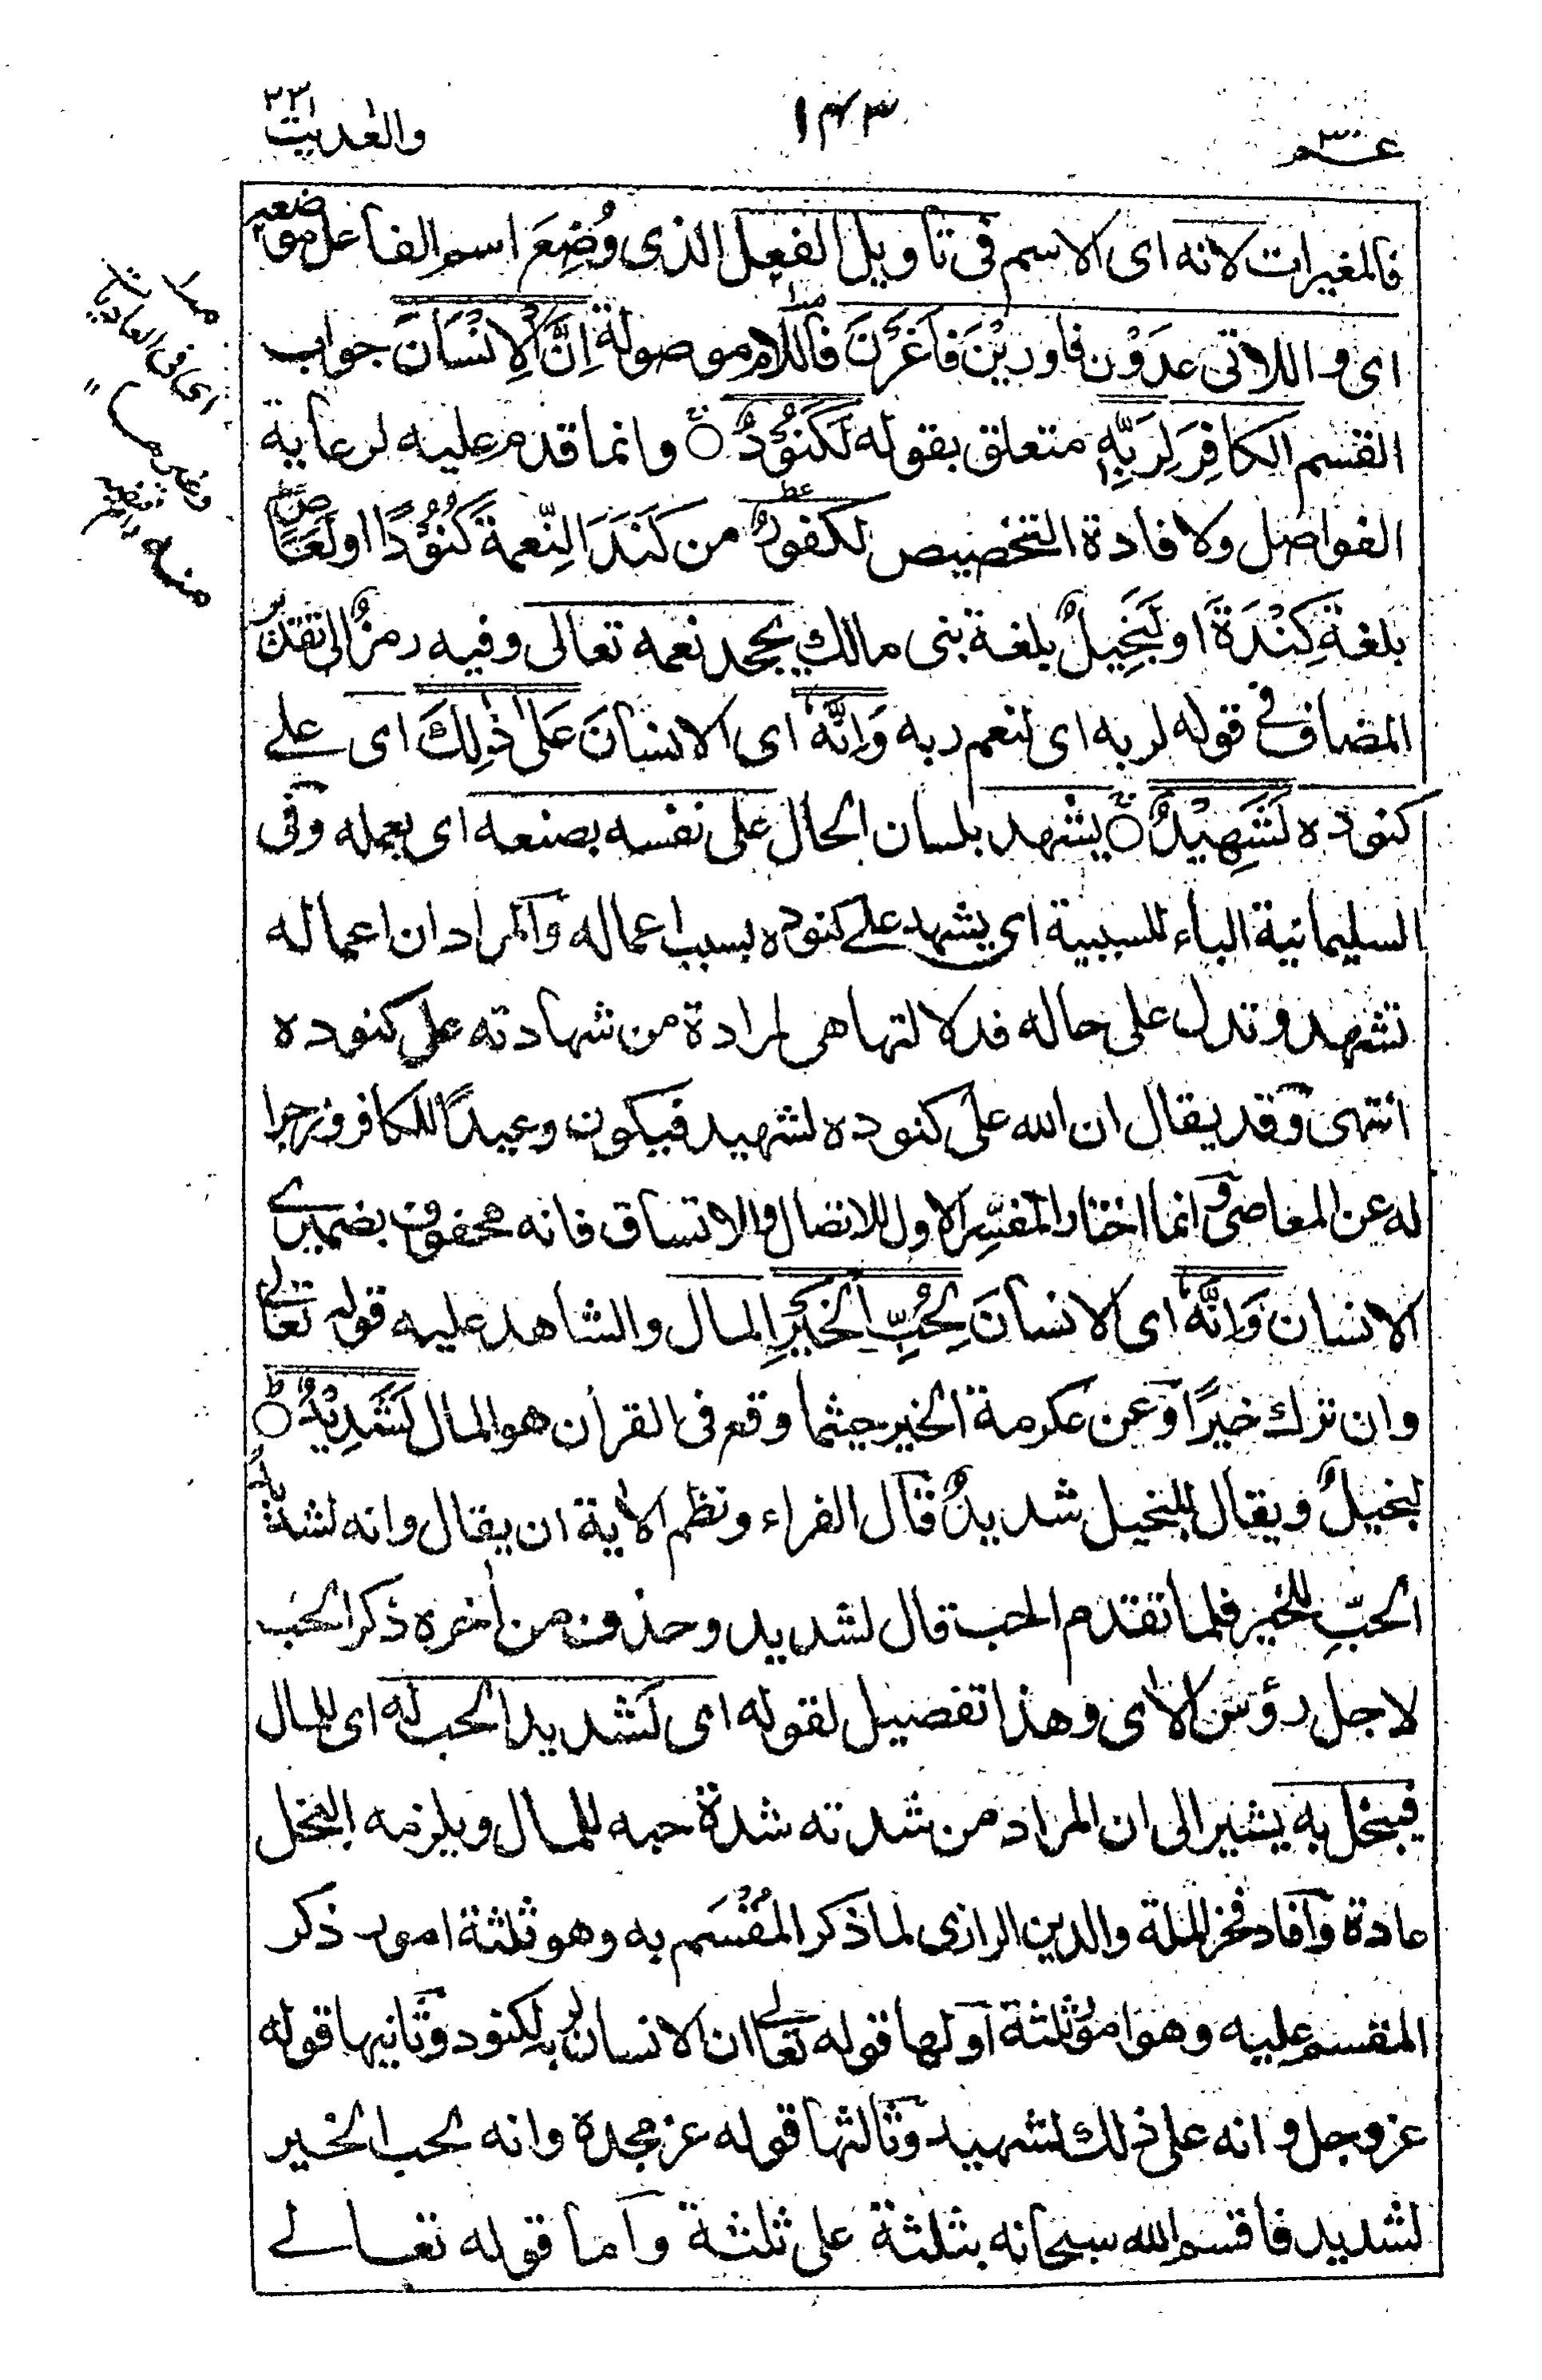 عم ٣٠
١٤٣
والعديت
٣٣١
فالمغيرات لانه اى الاسم فى تاويل الفعل الذى وُضِعَ اسم الفاعل موضعه
اى و اللاتى عدَوْن فاوريْنَ فَاَغَرْنَ فاللام موصولة اِنَّ الْاِنْسَانَ جواب
القسم الكافِرَ لِرَبِّهٖ متعلق بقوله لَكَنُوْدٌ وانما قدم عليه لرعاية
الفواصل ولافادة التخصيص لكفورٌ من كَنَدَ النِّعمةَ كُنُوْدًا اولَعَاصٍ
بلغة كِنْدَةَ اولَبَخِيلٌ بلغة بنى مالك يجحد نعمه تعالى وفيه رمزٌ الى تقدير
المضاف فى قوله لربه اى لنعم ربه وَاِنَّهٗ اى الانسانَ عَلٰى ذٰلِكَ اى على
كنوده لَشَهِيْدٌ يشهد بلسان الحال على نفسه بصنعه اى بعمله وفى
السليمانية الباء للسببية اى يشهد على كنوده بسبب اعماله والمراد ان اعماله
تشهد وتدل على حاله فدلالتها هى لمرادة من شهادته على كنوده
انتهى وقد يقال ان الله على كنوده لشهيد فيكون وعيدًا للكافر وزجرا
له عن المعاصى وانما اختار المفسِّر الاول للاتصال والاتساق فانه محفوف بضميرى
الانسان وَاِنَّهٗ اى الانسانَ لِحُبِّ الْخَيْرِ المال والشاهد عليه قوله تعالى
وان ترك خيرًا وعن عكرمة الخير حيثما وقع فى القرأن هو المال لَشَدِيْدٌ
لبخيلٌ ويقال للبخيل شديدٌ قال الفراء ونظم الأية ان يقال وانه لشديد
الحبِّ للخير فلما تقدم الحب قال لشديد وحذف من أخره ذكر الحب
لاجل رؤس الأى وهذا تفصيل لقوله اى لَشديد الحب له اى للمال
فيبخل به يشير الى ان المراد من شدته شدة حبه للمال ويلزمه البخل
عادة وافاد فخر الملة والدين الرازى لما ذكر المُقْسَم به وهو ثلثة امور ذكر
المقسم عليه وهو امورٌ ثلثة اولها قوله تعالى ان الانسان لربه لكنود وثانيها قوله
عزوجل وانه على ذلك لشهيد وثالثها قوله عز مجده وانه لحب الخير
لشديد فاقسم الله سبحانه بثلثة على ثلثة واما قوله تعالى
اى فى العاديات